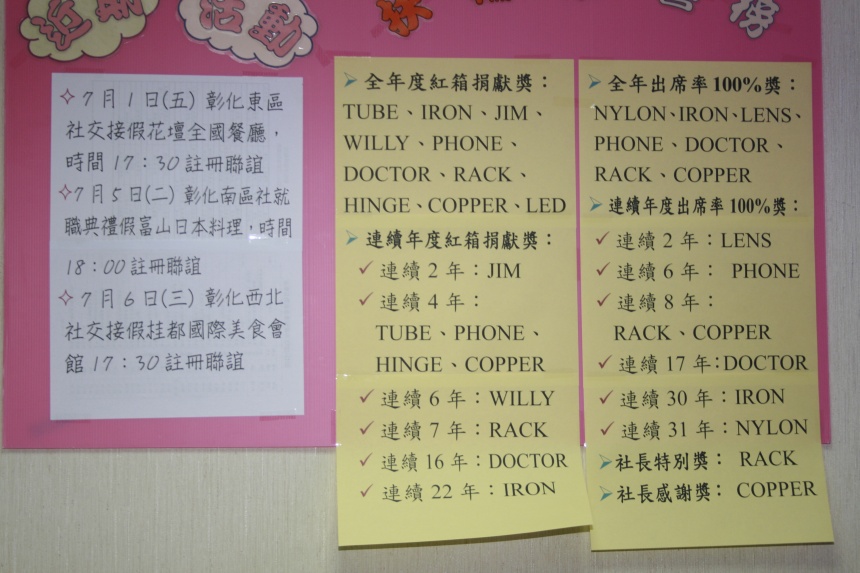 近期
活動
榜
✧7月1日(五) 彰化東區
社交接假花壇全國餐廳，
時間17：30註冊聯誼
✧7月5日(二) 彰化南區社就
職典禮假富山日本料理，時間
18：00註冊聯誼
✧7月6日(三) 彰化西北
社交接假挂都國際美食會
館17：30註冊聯誼
➢ 全年度紅箱捐獻獎：
TUBE、IRON、JIM、
WILLY、PHONE、
DOCTOR、RACK、
HINGE、COPPER、LED
➢ 連續年度紅箱捐獻獎：
✓ 連續 2 年：JIM
✓ 連續 4 年：
TUBE、PHONE、
HINGE、COPPER
✓ 連續 6 年：WILLY
✓ 連續 7 年：RACK
✓ 連續 16 年：DOCTOR
✓ 連續 22 年：IRON
➢ 全年出席率100%獎：
NYLON、IRON、LENS、
PHONE、DOCTOR、
RACK、COPPER
➢ 連續年度出席率100%獎：
✓ 連續 2 年：LENS
✓ 連續 6 年： PHONE
✓ 連續 8 年：
RACK、COPPER
✓ 連續 17 年：DOCTOR
✓ 連續 30 年：IRON
✓ 連續 31 年：NYLON
➢社長特別獎： RACK
➢社長感謝獎： COPPER